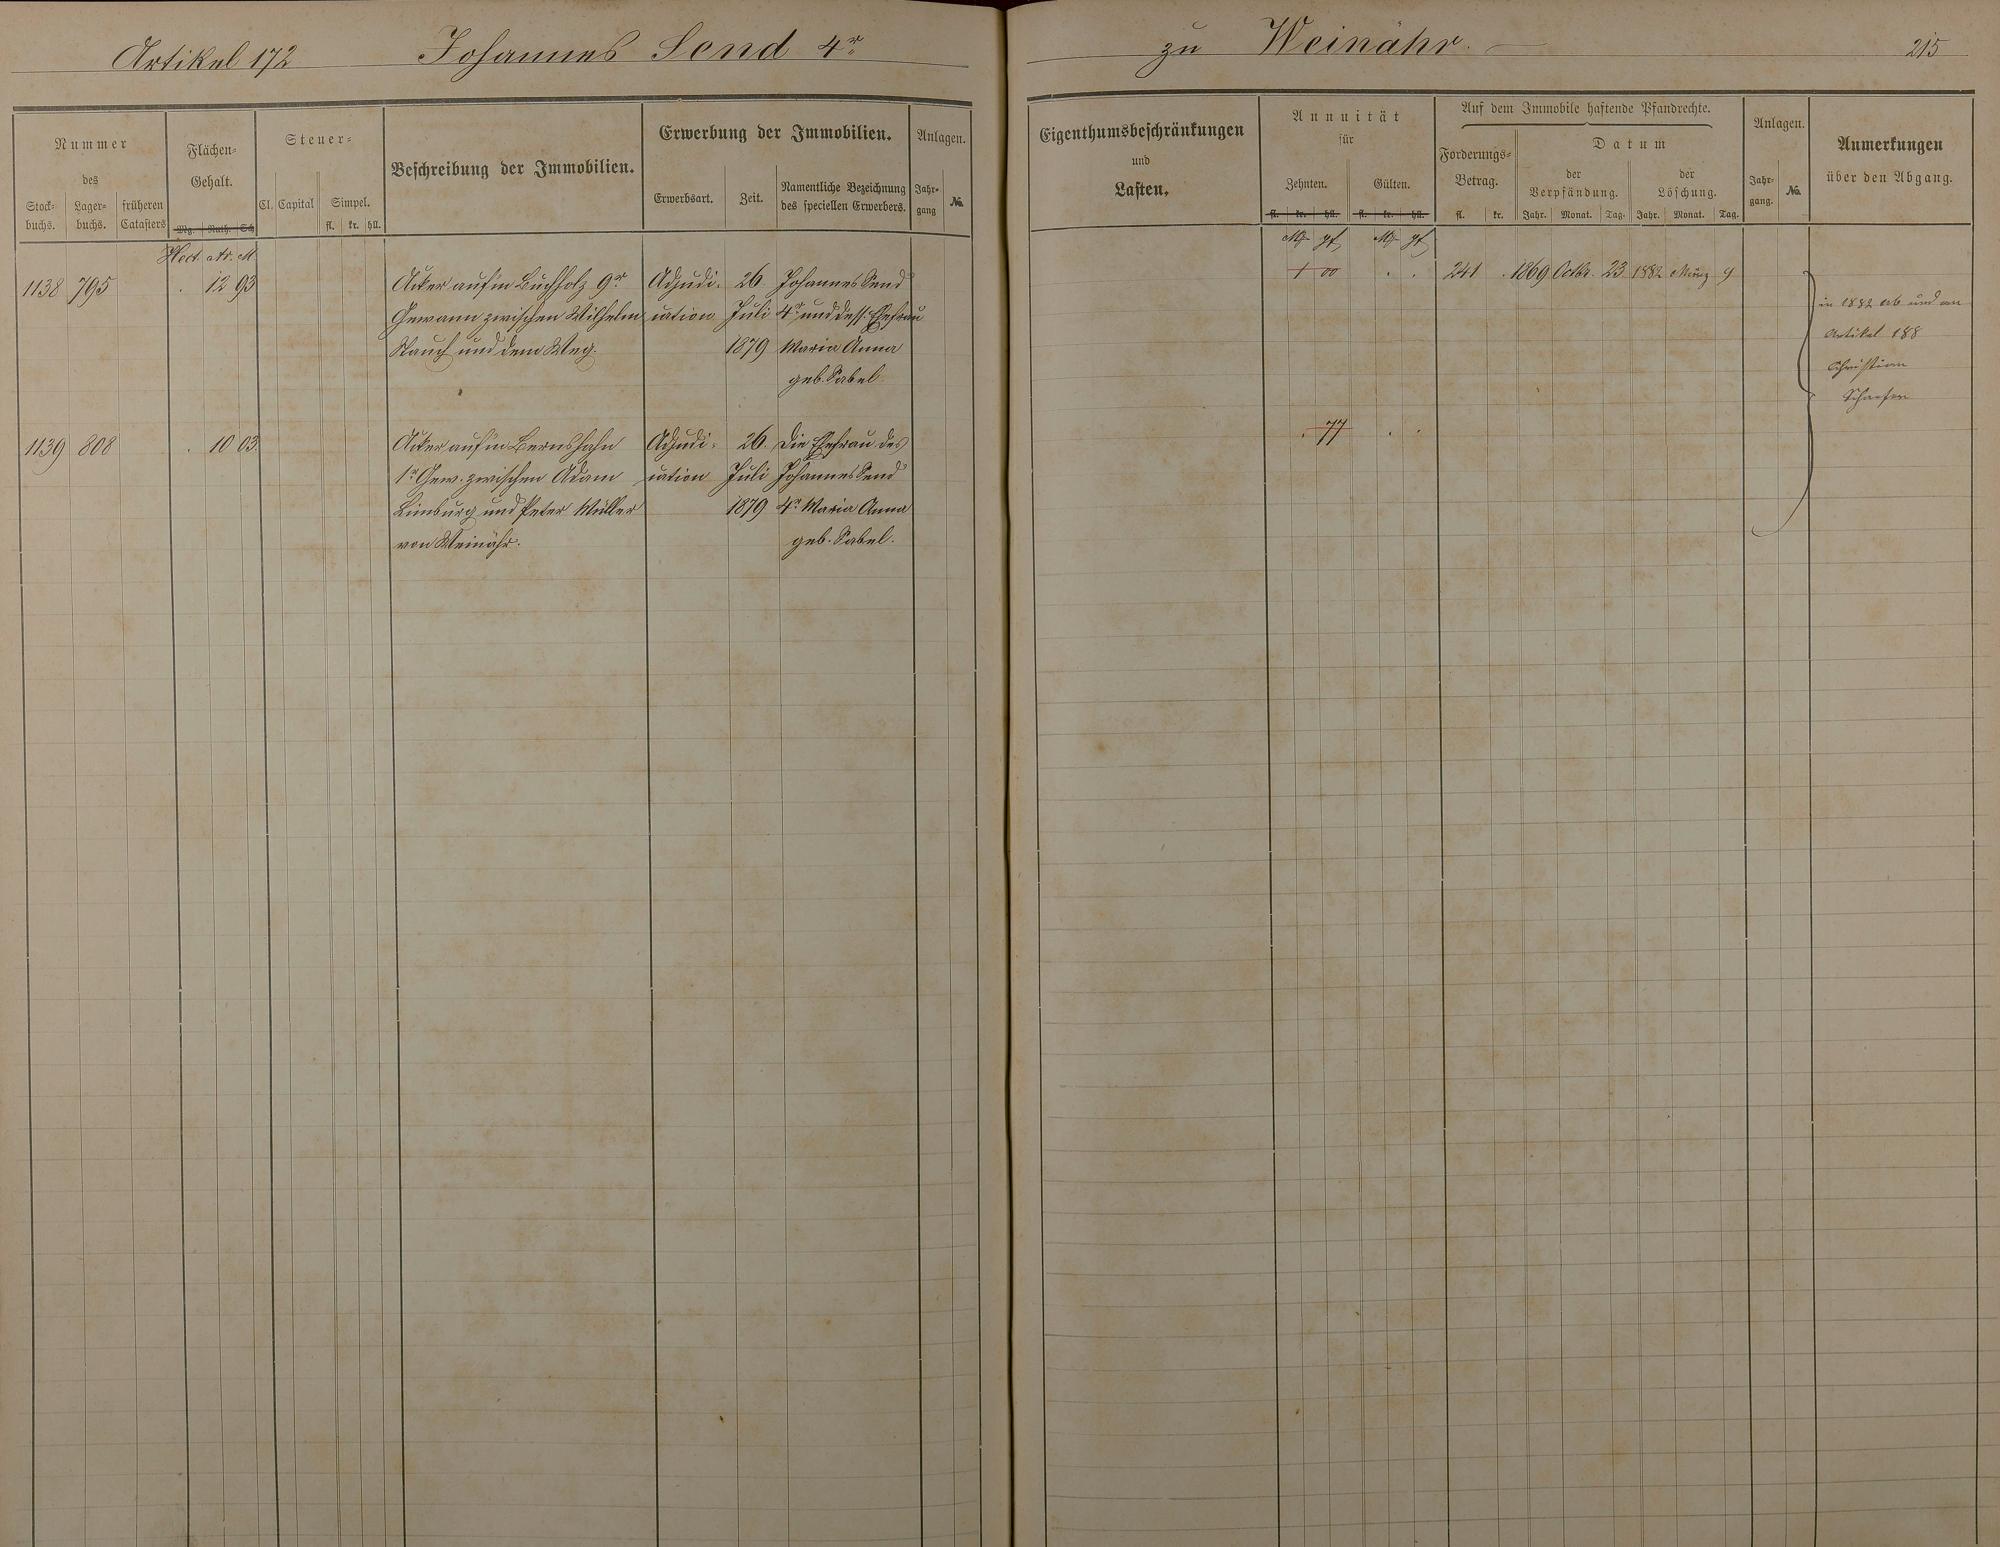 Artikel 172 Johannes Send 4r zu Weinähr. 215
Nummer
des
Stock-
buchs.
Lager-
buchs.
früheren
Catasters
Flächen-
Gehalt.
Mg. Ruth. Sch
Steuer-
Cl. Capital Simpel.
fl. kr. hll.
Beschreibung der Immobilien.
Erwerbung der Immobilien.
Erwerbsart. Zeit. Namentliche Bezeichnung
des speciellen Erwerbers.
Anlagen.
Jahr-
gang
No.
Eigenthumsbeschränkungen
und
Lasten.
Annuität
für
Zehnten. Gülten.
fl. kr. hll. fl. kr. hll.
Auf dem Immobile haftende Pfandrechte.
Forderungs-
Betrag.
fl. kr.
Datum
der
Verpfändung.
der
Löschung.
Jahr. Monat. Tag. Jahr. Monat. Tag.
Anlagen.
Jahr-
gang.
No.
Anmerkungen
über den Abgang.
Hect. Ar. M.
1138 795 . 12 93
Acker auf'm Buchholz 9r
Gewann zwischen Wilhelm
Rauch und dem Weg.
Adjudi-
cation
26.
Juli
1879
Johannes Send
4r und dess. Ehefrau
Maria Anna
geb. Sabel.
1 00 . .
241 . 1869 Octbr. 23 1882 März 9
in 1882 ab und an
Artikel 188
Christian
Schaefer
1139 808 . 10 03.
Acker auf'm Bernshahn
1r Gew. zwischen Adam
Limburg und Peter Müller
von Weinähr.
Adjudi-
cation
26.
Juli
1879
Die Ehefrau des
Johannes Send
4r Maria Anna
geb. Sabel.
. 77 . .